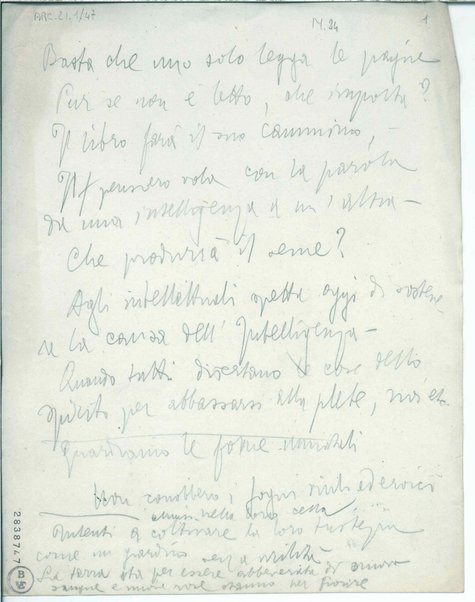 ARC.21.1/47
N. 24
1
Basta che uno solo legga le pagine
Pur se non è letto, che importa?
Il libro farà il suo cammino,
Il pensiero vola con la parola
da una intelligenza a un'altra –
Che produrrà il seme?
Agli intellettuali spetta oggi di sostene
re la causa dell'Intelligenza –
Quando tutti disertano le cose dello
spirito per abbassarsi alla plebe, noi
guardiamo le forme immortali
Non conobbero i sogni ed eroici
chiusi nella loro cella
intenti a coltivare la loro
come un giardino senza
La terra sta per essere abbeverata di nuovo
sangue e nuove rose stanno per fiorire
2838747